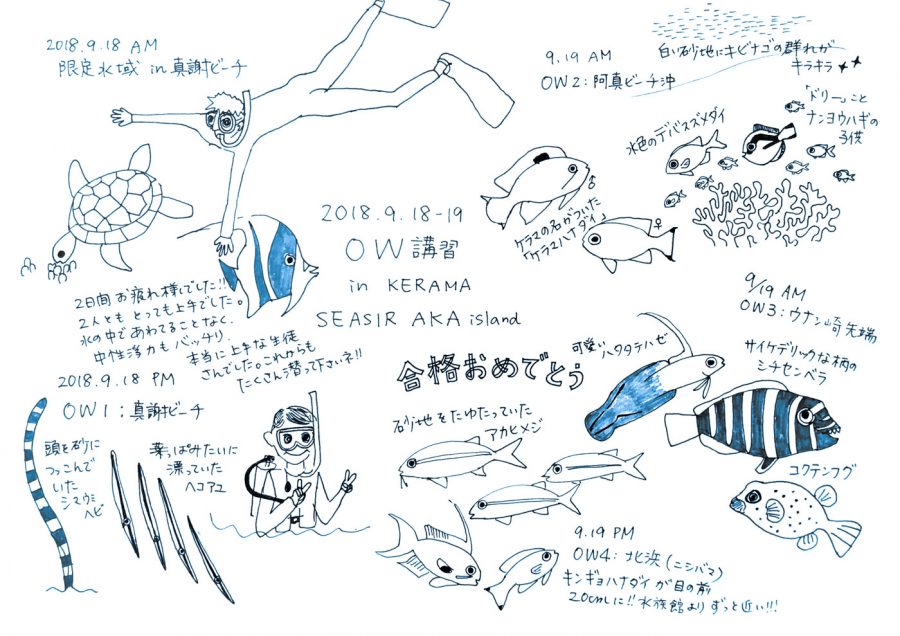 2018.9.18 AM
限定水域 in 真謝ビーチ
9.19 AM
OW2：阿真ビーチ沖
白い砂地にキビナゴの群れが
キラキラ
「ドリー」こと
ナンヨウハギの
子供
水色のデバスズメダイ
♂
ケラマの名がついた
「ケラマハナダイ」
♀
2018.9.18-19
OW講習
in KERAMA
SEASIR AKA island
合格おめでとう
2日間お疲れ様でした!!
2人ともとっても上手でした。
水の中であわてることなく、
中性浮力もバッチリ。
本当に上手な生徒
さんでした。これからも
たくさん潜って下さいネ!!
2018.9.18 PM
OW1：真謝ビーチ
頭を砂に
つっこんで
いた
シマウミ
ヘビ
葉っぱみたいに
漂っていた
ヘコアユ
9/19 AM
OW3：ウナン崎先端
可愛いハタタテハゼ
サイケデリックな柄の
シチセンベラ
コクテンフグ
砂地をたゆたっていた
アカヒメジ
9.19 PM
OW4：北浜(ニシバマ)
キンギョハナダイが目の前
20cmに!!水族館よりずっと近い!!!